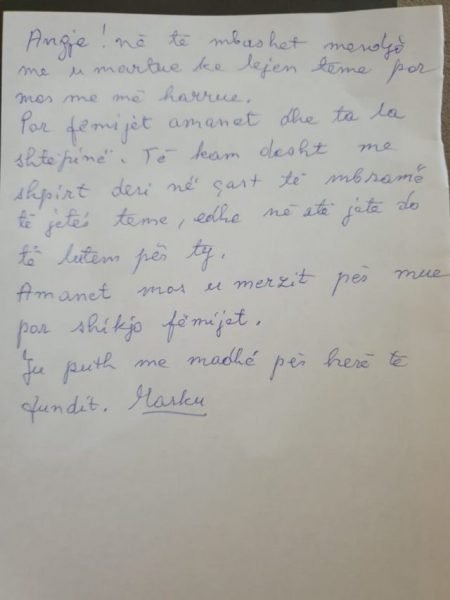 Angje! në të mbashet mendja
me u martue ke lejen teme por
mos me më harrue.
Por fëmijët amanet dhe ta la
shtëpinë. Të kam dasht me
shpirt deri në çast të mbramë
të jetës teme, edhe në atë jetë do
të lutem për ty.
Amanet mos u merzit për mue
por shikjo fëmijët.
Ju puth me madhë për herë të
fundit. Marku